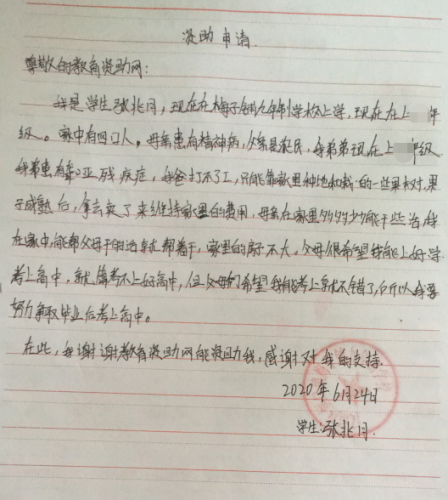 资助申请
尊敬的教育资助网:
我是学生张兆月,现在在梅子铺九年制学校上学,现在在上 年
级。家中有四口人。母亲患有精神病,父亲是农民,我弟弟现在上 年级
我弟患有聋哑残疾症,我爸打不了工,只能靠家里种地和栽的一些果树,果
子成熟后,拿去卖了来维持家里的费用,母亲在家里多多少少能干些活,我
在家中,能帮父母干的活就帮着干,家里的房子不大,父母很希望我能上好学
考上高中,就算考不上好高中,但父母们希望我能考上就不错了,所以我要
努力争取毕业后考上高中。
在此,我谢谢教育资助网能资助我,感谢对我的支持.
2020年6月24日
学生:张兆月